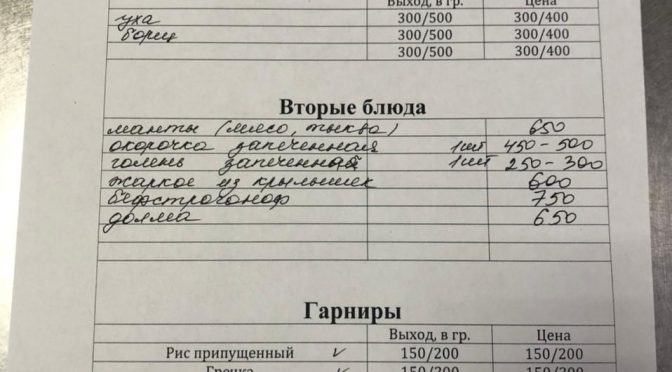 Выход, в гр. Цена
уха 300/500 300/400
борщ 300/500 300/400
300/500 300/400
Вторые блюда
манты (мясо, тыква) 650
окорочка запеченная 1шт 450-500
голень запеченная 1шт 250-300
жаркое из крылышек 600
бефстроганоф 750
долма 650
Гарниры
Выход, в гр. Цена
Рис припущенный ✓ 150/200 150/200
Гречка ✓ 150/200 150/200